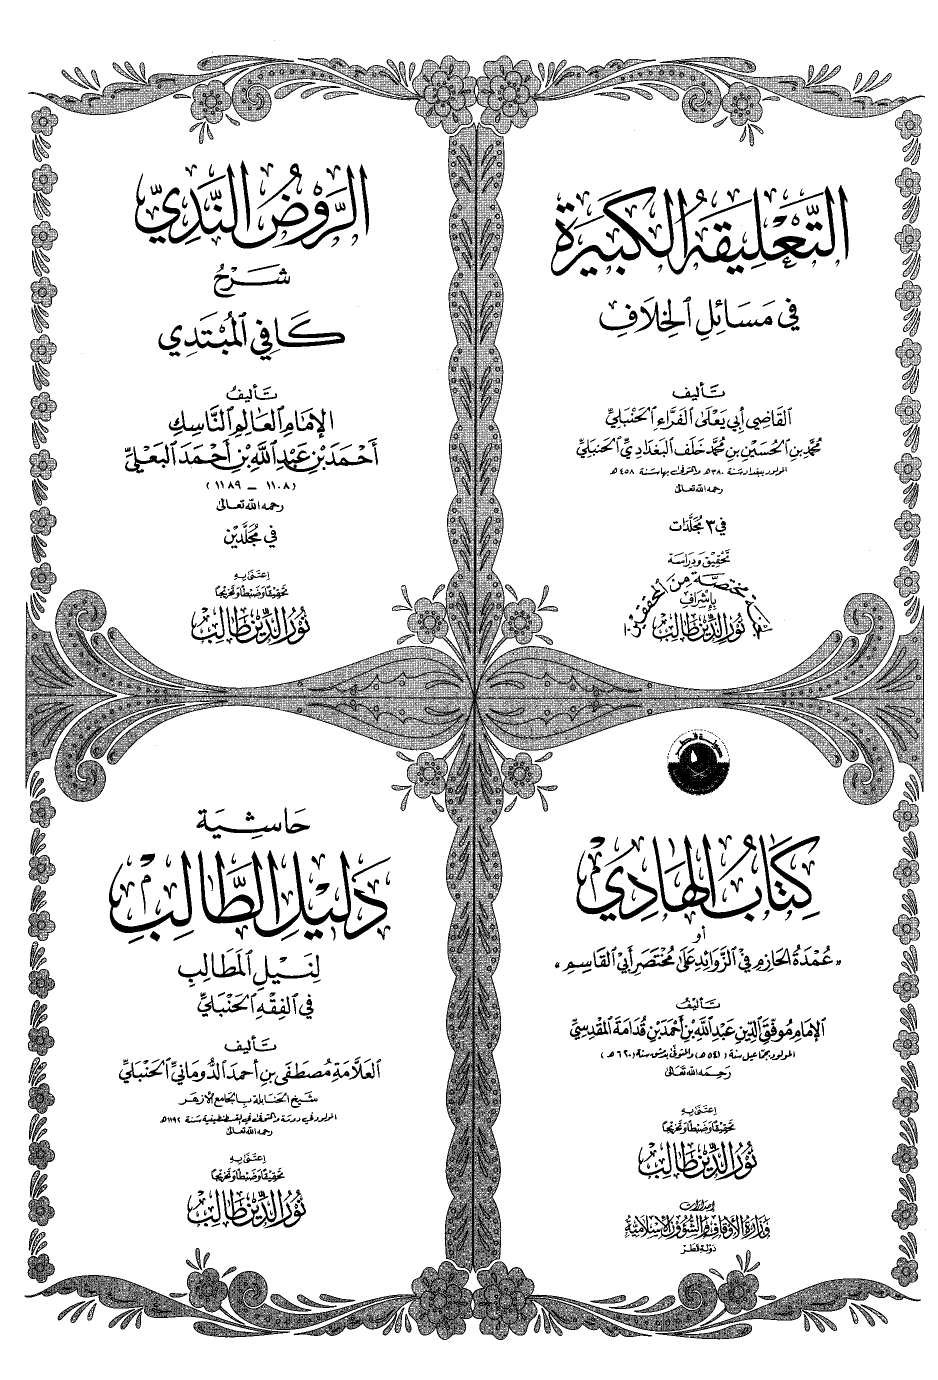 التَّعْلِيقَةُ الكَبِيرَة
فِي مَسَائِلِ الخِلَافِ
تَأليف
القَاضِي أبي يَعْلَى الفَرَّاءِ الحَنْبَليِّ
مُحَمَّد بن الحُسَيْن بن مُحَمَّد خَلَف البَغدَادِيِّ الحَنْبَليِّ
المولود ببغداد سَنة ٣٨٠هـ والمتوفى بها سَنة ٤٥٨ هـ
رحمه الله تعالى
في ٣ مُجلَّدَات
تَحْقِيق وَدِرَاسَة
لجنة مختصّة من المحققين
بإشراف
نُورُ الدِّين طَالِب
الرَّوْضُ النَّدِيُّ
شَرْحُ
كَافِي المُبْتَدِي
تَأليفُ
الإمَامِ العَالِمِ النَّاسِكِ
أَحْمَد بن عَبد اللَّه بن أَحْمَد البَعْليّ
(١١٠٨ – ١١٨٩)
رحمه الله تعالى
في مُجَلَّدَين
اعتَنى بِهِ
تَحْقِيقًا وَضَبْطًا وَتَخْرِيجًا
نُورُ الدِّين طَالِب
دولة قطر
كِتَابُ الهَادِي
أو
« عُمْدَةُ الحَازِمِ في الزَّوَائِدِ عَلَى مُخْتَصَر أبي القَاسِمِ »
تَأليفُ
الإمَامِ مُوَفَّق الدِّين عَبد اللَّه بن أحْمَد بن قُدَامَة المَقْدِسِيِّ
المولود بجمّاعيل سنة (٥٤١ هـ) والمتوفى بدمشق سنة (٦٢٠ هـ)
رَحِمَهُ اللهُ تَعَالى
اعتَنى بِهِ
تَحْقِيقًا وَضَبْطًا وَتَخْرِيجًا
نُورُ الدِّين طَالِب
إصدارات
وَزَارَة الأوقاف والشؤون الإسلامية
دَولة قطر
حَاشِيَة
دَلِيلِ الطَّالِبِ
لِنَيْلِ المَطَالِبِ
في الفِقْهِ الحَنْبَليِّ
تَأليف
العَلَّامَة مُصْطَفَى بن أحمَد الدُّومَانيِّ الحَنْبَليِّ
شَيخ الحَنَابلة بالجَامع الأزهَر
المولود في دومة والمتوفى في القسطنطينية سَنة ١١٩٢هـ
رحمه الله تعالى
اعتَنى بِهِ
تَحْقِيقًا وَضَبْطًا وَتَخْرِيجًا
نُورُ الدِّين طَالِب